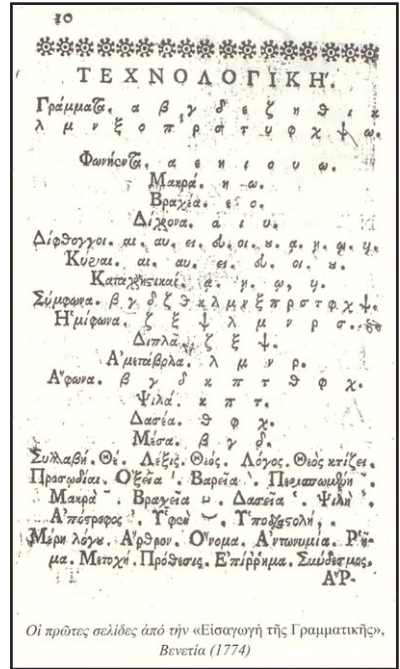 10
ΤΕΧΝΟΛΟΓΙΚΗ΄.
Γράμματα. α β γ δ ε ζ η θ ι κ
λ μ ν ξ ο π ρ σ τ υ φ χ ψ ω.
Φωνήεντα. α ε η ι ο υ ω.
Μακρά. η ω.
Βραχέα. ε ο.
Δίχρονα. α ι υ.
Δίφθογγοι. αι. αυ. ει. ευ. οι. ου. ᾳ. ῃ. ῳ.
Κύριαι. αι. αυ. ει. ευ. οι. ου.
Καταχρηστικαί. ᾳ. ῃ. ῳ,
Σύμφωνα. β γ δ ζ θ κ λ μ ν ξ π ρ σ τ φ χ ψ.
Ἡμίφωνα. ζ ξ ψ λ μ ν ρ σ.
Διπλᾶ. ζ ξ ψ.
Ἀμετάβολα. λ μ ν ρ.
Ἄφωνα. β γ δ κ π τ θ φ χ.
Ψιλά. κ π τ.
Δασέα. θ φ χ.
Μέσα. β γ δ.
Συλλαβή. Θέ. Λέξις. Θεός. Λόγος. Θεὸς κτίζει.
Προσῳδίαι. Ὀξεῖα ΄. Βαρεῖα `. Περισπωμένη ῀.
Μακρὰ ¯. Βραχεῖα ᴗ. Δασεῖα ῾. Ψιλὴ ᾿.
Ἀπόστροφος ᾿. Ὑφὲν ‿. Ὑποδιαστολή, .
Μέρη λόγου. Ἄρθρον. Ὄνομα. Ἀντωνυμία. Ῥῆ-
μα. Μετοχή. Πρόθεσις. Ἐπίρρημα. Σύνδεσμος.
ἌΡ-
Οἱ πρῶτες σελίδες ἀπό τήν «Εἰσαγωγή τῆς Γραμματικῆς»,
Βενετία (1774)